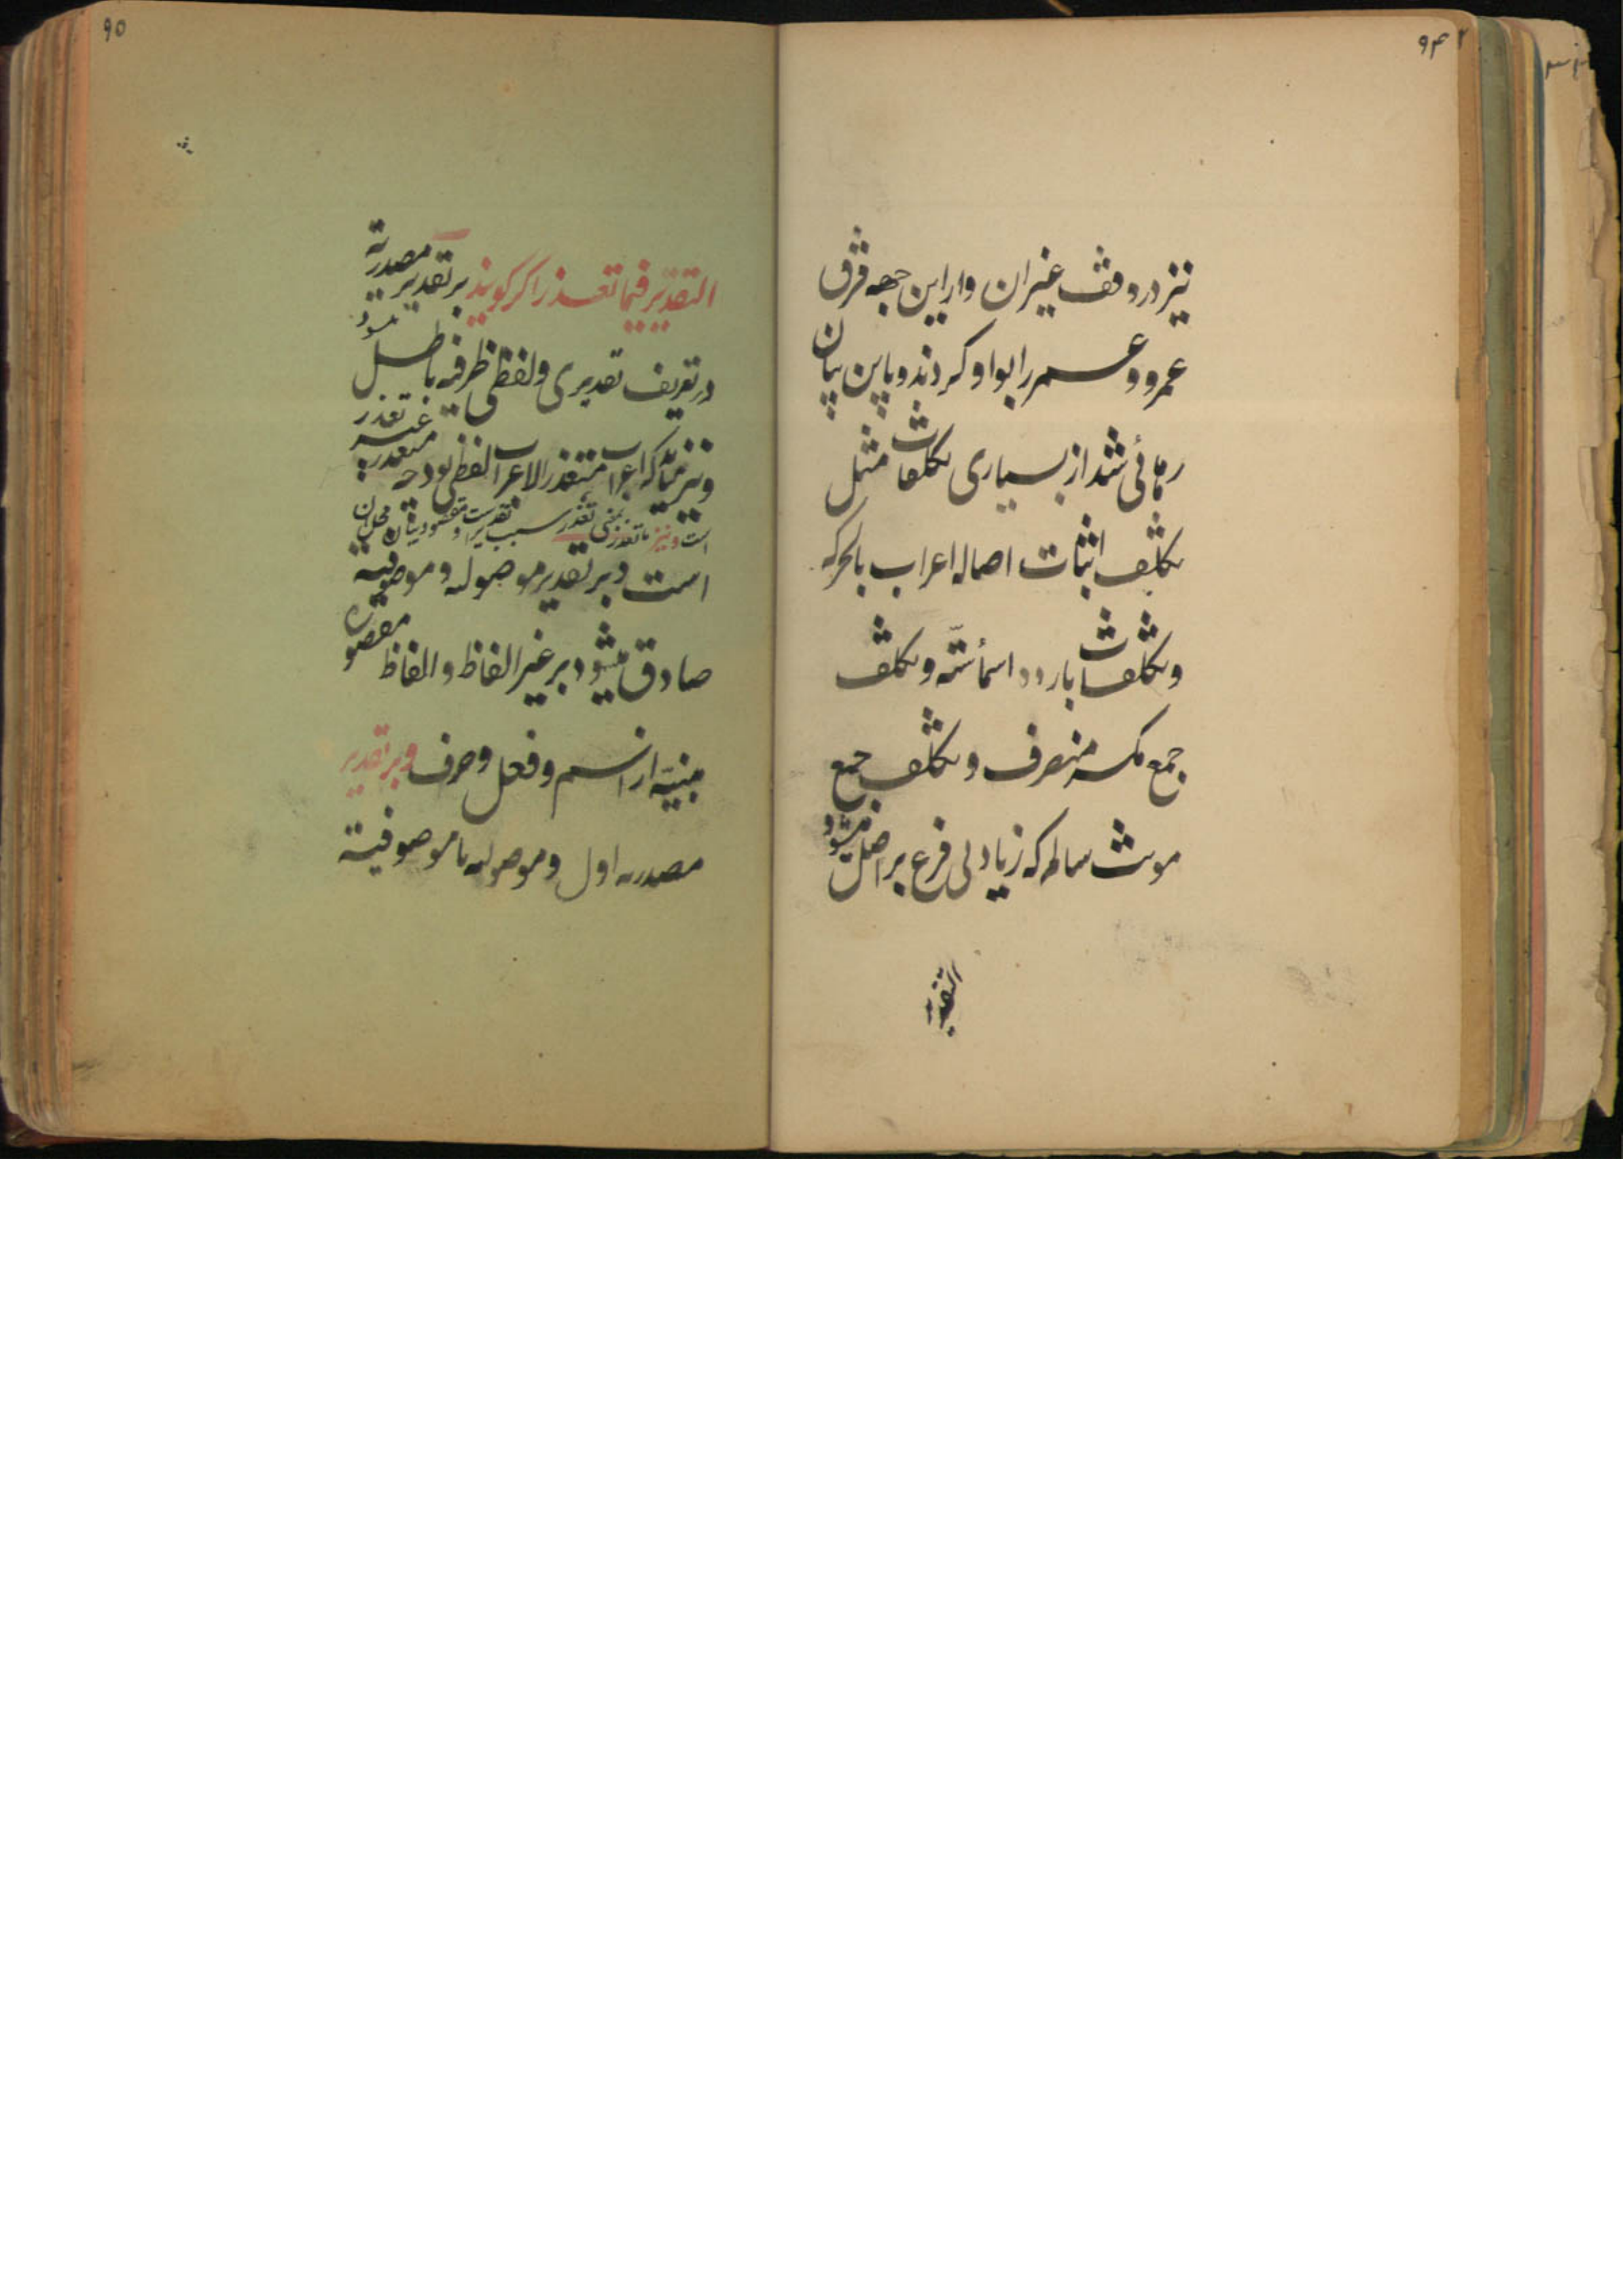 ۹۴
نیز در وقف غیر ان و از این جهه فرق
عمرو و عمر را بواو کردند و باین بیان
رهائی شد از بسیاری تکلفات مثل
تکلف اثبات اصاله اعراب بالحرکه
و تکلفات بارده در اسمأ ستّه و تکلف
جمع مکسر منصرف و تکلف جمع
مونث سالم که زیادتی فرع بر اصل میشود
التقدیر
۹۵
التقدیر فیما تعذر اکر کویند بر تقدیر مصدریه
در تعریف تقدیری و لفظی ظرفیه باطل میشود
و نیز اعراب متعذر الاعراب لفظی بود چه تعذر غیر متعذر
است و نیز ما تعذر بمعنی تعذر سبب تقدیر است و مقصود بیان محل ان
است و بر تقدیر موصوله و موصوفیه
صادق میشود بر غیر الفاظ و الفاظ مقصوره
مبنیّه از اسم و فعل و حرف و بر تقدیر
مصدریه اول و موصوله یا موصوفیة